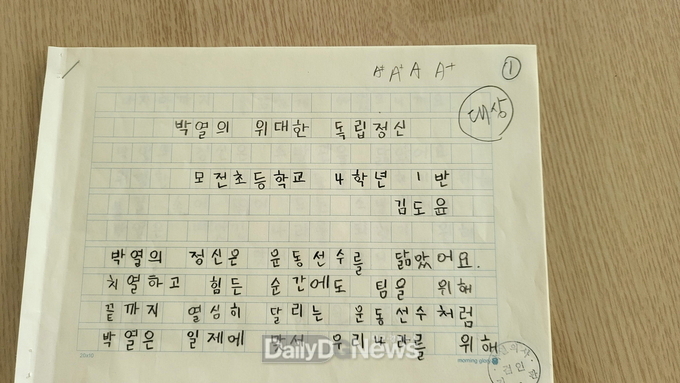 A+ A+ A A+ ①
대상
박열의 위대한 독립정신
모전초등학교 4학년 1반
김도윤
박열의 정신은 운동선수를 닮았어요.
치열하고 힘든 순간에도 팀을 위해
끝까지 열심히 달리는 운동선수처럼
박열은 일제에 맞서 우리나라를 위해
DailyDgNews
morning glory